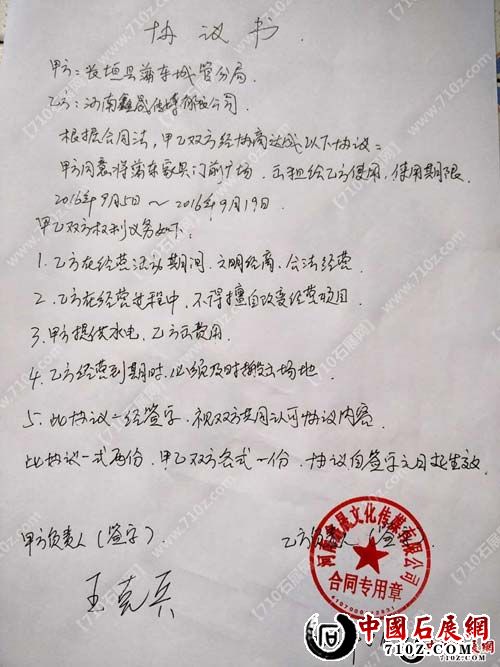 协议书.
甲方:长垣县蒲东城管分局.
乙方:河南鑫晟传媒有限公司
根据合同法,甲乙双方经协商达成以下协议:
甲方同意将蒲东家具门前广场,出租给乙方使用,使用期限.
2016年9月5日~2016年9月19日.
甲乙双方权利义务如下:
1.乙方在经营活动期间,文明经商、合法经营
2.乙方在经营过程中,不得擅自改变经营项目
3.甲方提供水电,乙方出费用.
4.乙方经营到期时,必须及时搬出场地.
5.此协议一经签字,视双方共同认可协议内容
此协议一式两份,甲乙双方各式一份,协议自签字之日起生效.
甲方负责人(签字)
乙方负责人(签字)
王克兵
河南鑫晟文化传媒有限公司
合同专用章
中國石展網
www.710z.com
【710石展网】
www.710z.com